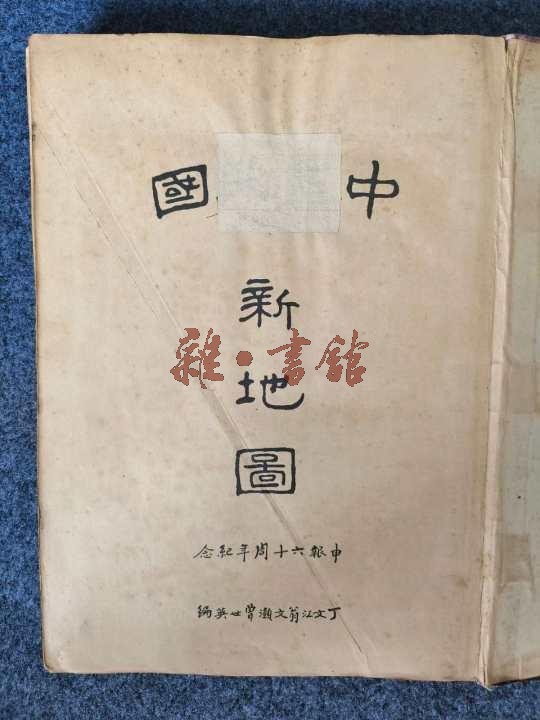 中國
新
地
圖
雜·書館
申報六十周年紀念
丁文江翁文灝曾世英編